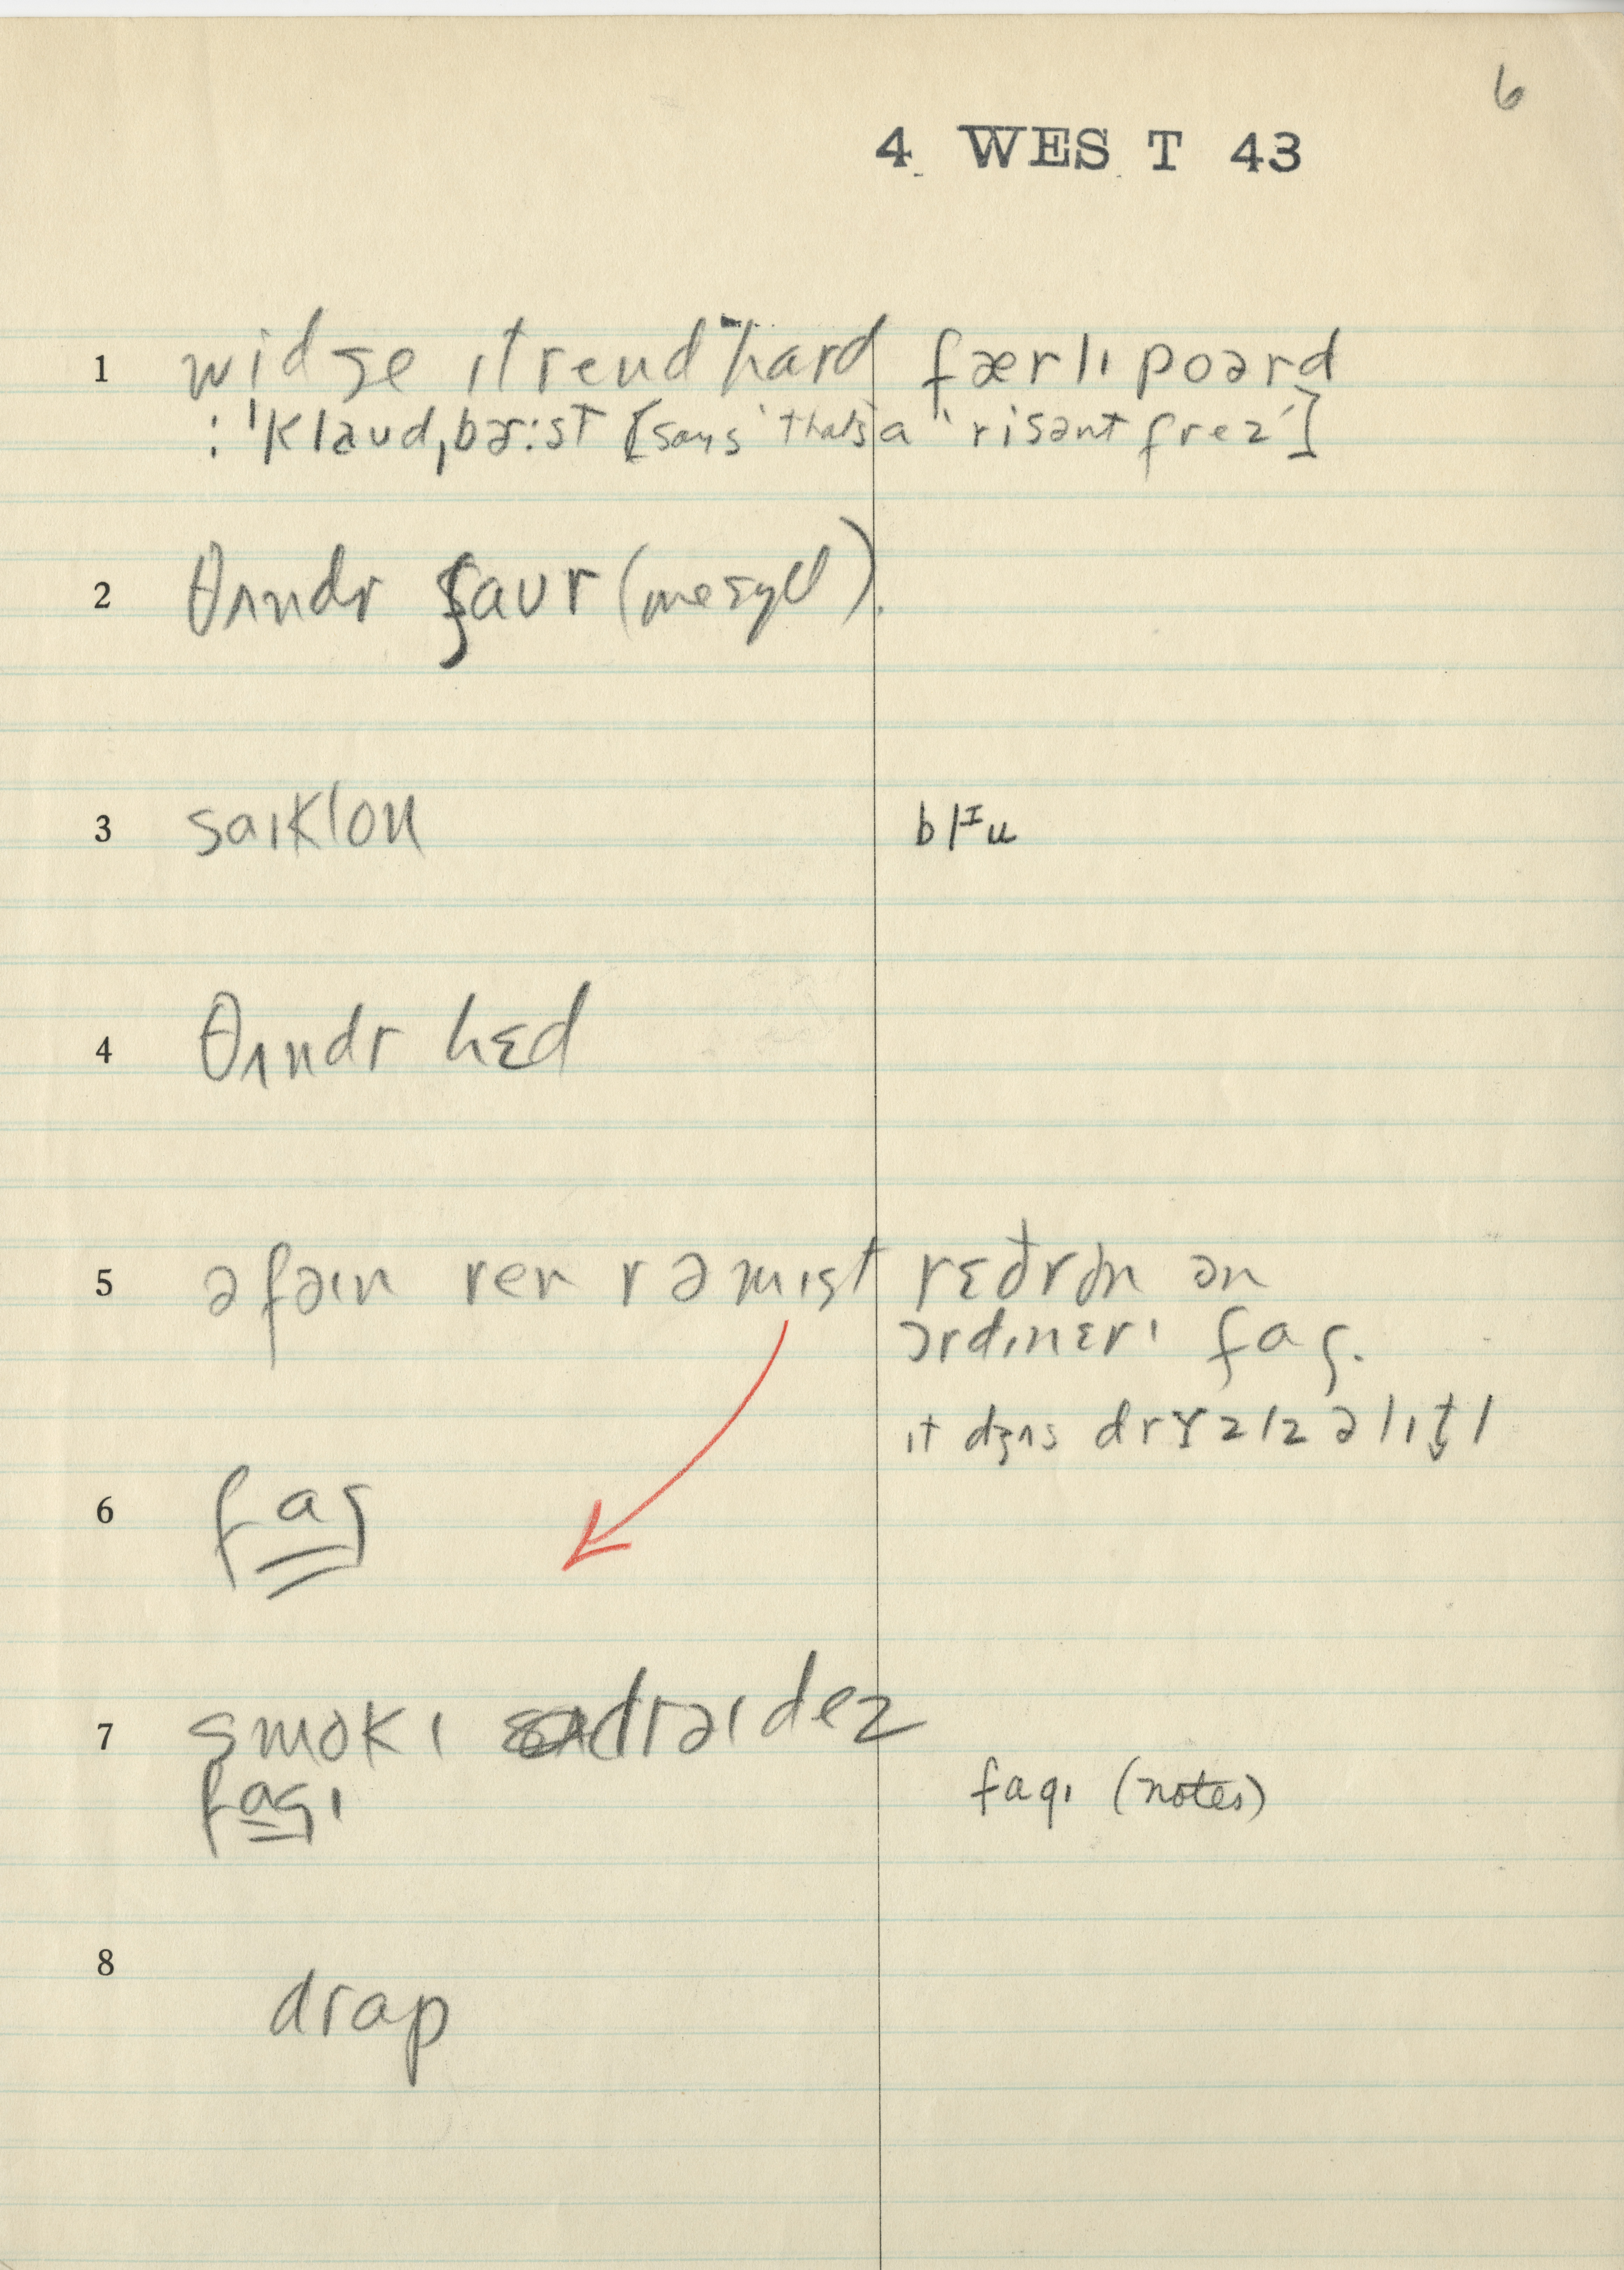 6
4 WES T 43
1 widʒe ɪt reɪnd hard færlɪ poərd
: ˈklaud,bɚːst [says 'that's a "risənt frez']
2 θʌndr ʃaur (mesyU).
3 saɪklon blᴵu
4 θʌndr hɛd
5 ə faɪn ren r ə mɪst rɛðr ðn ən
ɔrdɪnɛrɪ fag.
ɪt dʒʌs drɪzlz ə lɪtl
6 fag
7 smokɪ draɪdez
fagɪ fagɪ (notes)
8 drap